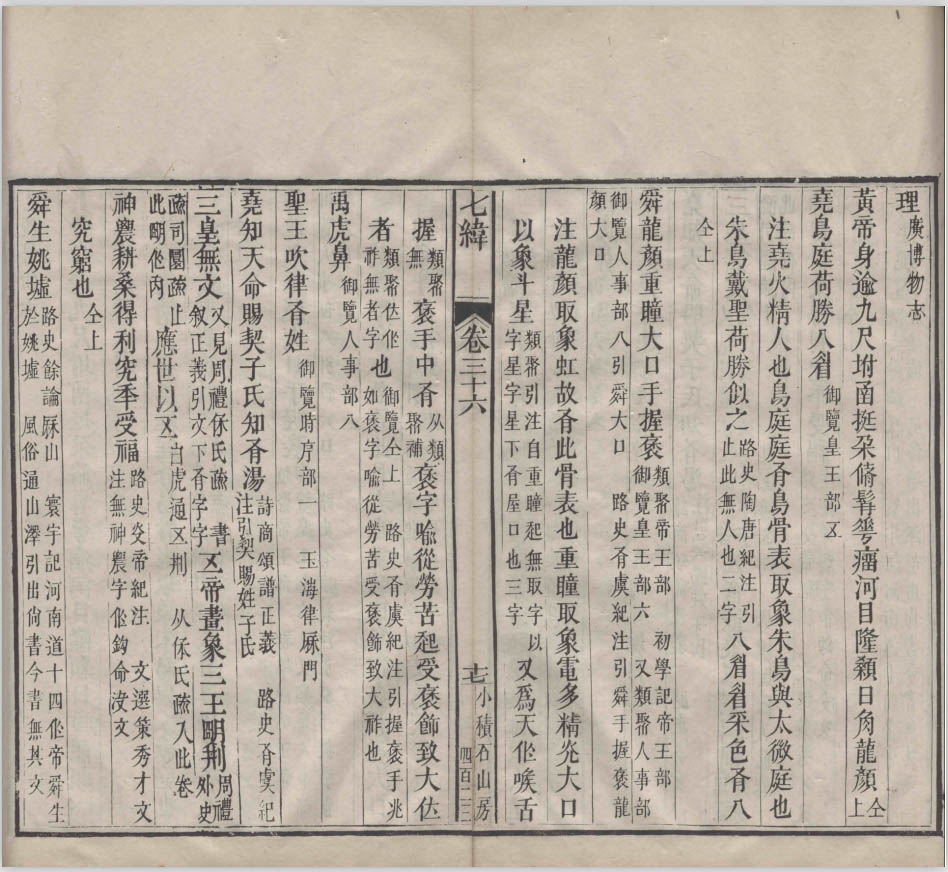 理廣博物志
黃帝身逾九尺坿圅挺朶脩髯蕚瘤河目隆顙日角龍顏仝上
堯鳥庭荷勝八眉御覽皇王部五
注堯火精人也鳥庭庭有鳥骨表取象朱鳥與太微庭也
朱鳥戴聖荷勝似之路史陶唐紀注引止此無人也二字八眉眉采色有八
仝上
舜龍顏重瞳大口手握褒類聚帝王部 初學記帝王部御覽皇王部六 又類聚人事部
御覽人事部八引舜大口 路史有虞紀注引舜手握褒龍顏大口
注龍顏取象虹故有此骨表也重瞳取象電多精光大口
以象斗星類聚引注自重瞳起無取字以字星字星下有屋口也三字又爲天作喉舌
七緯 卷三十六 十七 小積石山房 四百二三
握類聚無褒手中有从類聚補褒字喻從勞苦起受褒飾致大位
者類聚位作祚無者字也御覽仝上 路史有虞紀注引握褒手兆如褒字喻從勞苦受褒飾致大祚也
禹虎鼻御覽人事部八
聖王吹律有姓御覽時序部一 玉海律厤門
堯知天命賜契子氏知有湯詩商頌譜正義 路史有虞紀注引契賜姓子氏
三皇無文又見周禮保氏疏 書敘正義引文下有字字五帝畫象三王明刑周禮外史
疏司圜疏止此明作肉應世以五白虎通五刑 从保氏疏入此卷
神農耕桑得利究年受福路史炎帝紀注 文選策秀才文注無神農字作鈎命決文
究窮也仝上
舜生姚墟路史餘論厤山 寰宇記河南道十四作帝舜生於姚墟 風俗通山澤引出尙書今書無其文